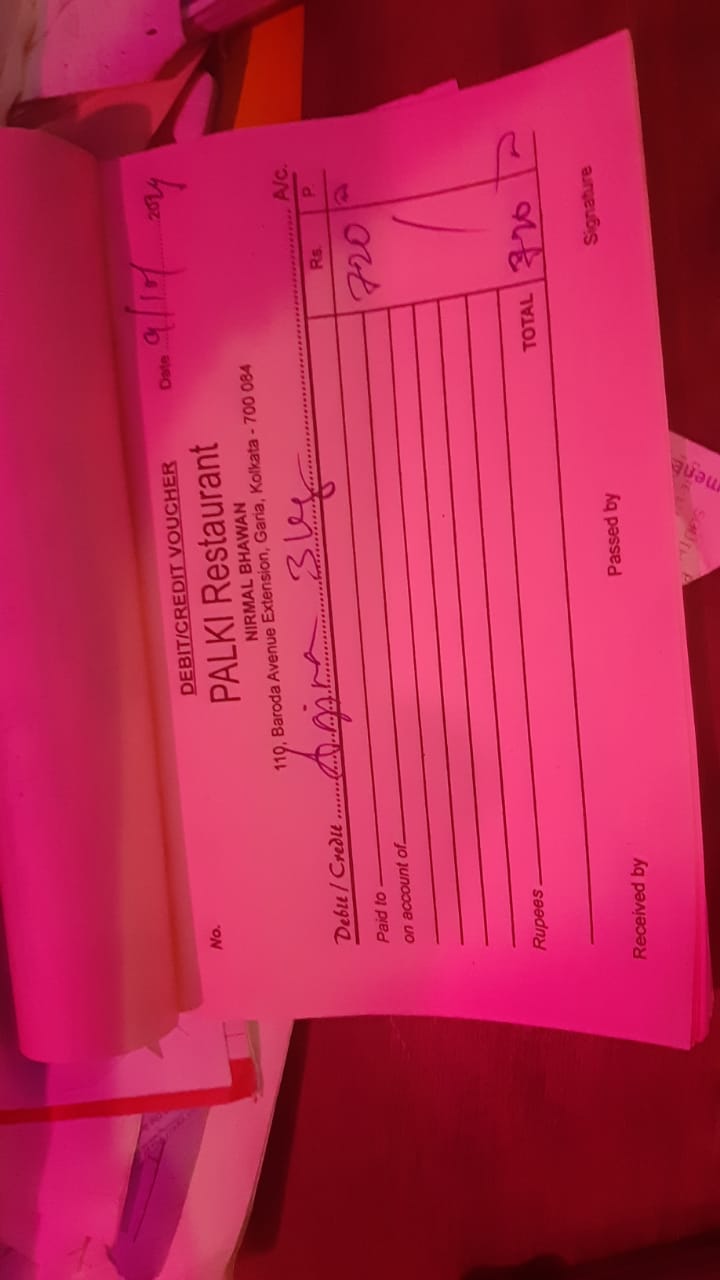 DEBIT/CREDIT VOUCHER
No. Date 9/10/ 2024
PALKI Restaurant
NIRMAL BHAWAN
110, Baroda Avenue Extension, Garia, Kolkata - 700 084
Debit / Credit ........ A/c.
Rs. P.
Paid to 720
on account of
Rupees TOTAL 720
Received by Passed by Signature